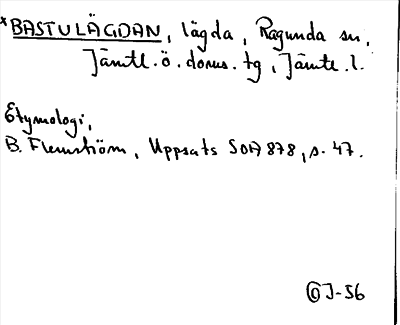 *BASTULÄGDAN, lägda, Ragunda sn,
Jämtl. ö. doms. tg, Jämtl. l.
Etymologi,
B. Flemström, Uppsats SOA 878, s. 47.
OJ-56